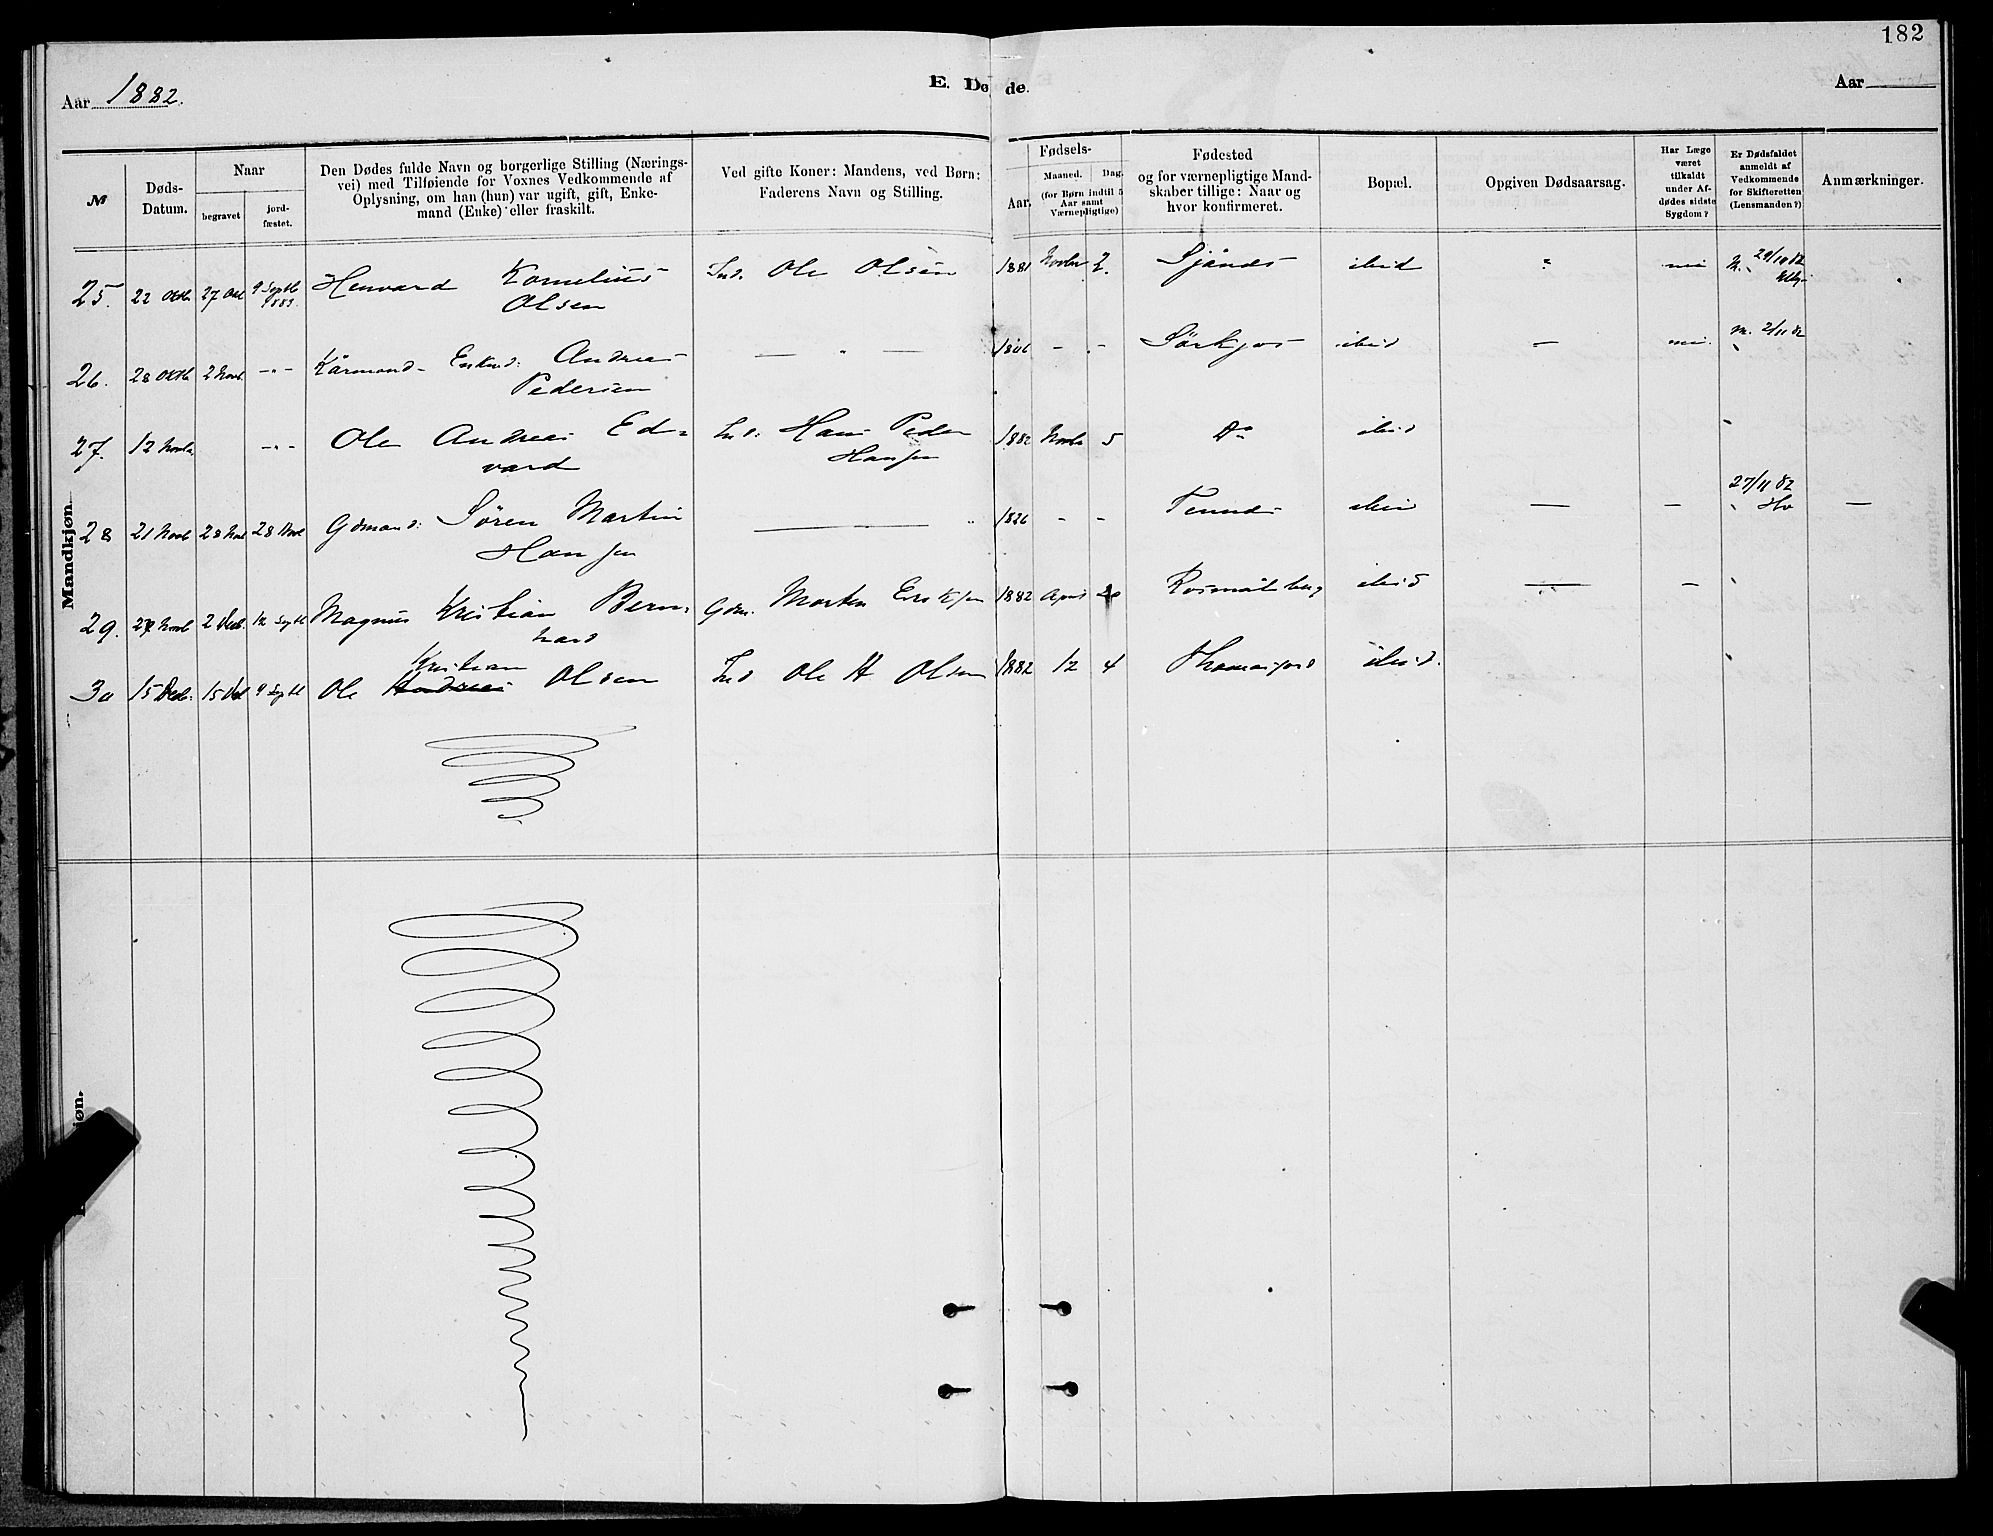 182
Aar 1882.
E. Dø de.
Aar
№
Døds-
Datum.
Naar
begravet
jord-
fæstet.
Den Dødes fulde Navn og borgerlige Stilling (Nærings-
vei) med Tilføiende for Voxnes Vedkommende af
Oplysning, om han (hun) var ugift, gift, Enke-
mand (Enke) eller fraskilt.
Ved gifte Koner: Mandens, ved Børn:
Faderens Navn og Stilling.
Fødsels-
Aar.
Maaned.
Dag.
(for Børn indtil 5
Aar samt
Værnepligtige)
Fødested
og for værnepligtige Mand-
skaber tillige: Naar og
hvor konfirmeret.
Bopæl.
Opgiven Dødsaarsag.
Har Læge
været
tilkaldt
under Af-
dødes sidste
Sygdom?
Er Dødsfaldet
anmeldt af
Vedkommende
for Skifteretten
(Lensmanden?)
Anmærkninger.
Mandkjøn.
25. 22 Oktb 27 Okt 9 Septb Henvard Kornelius Ind. Ole Olsen 1881 Novbr 2. ibid nei 29/10 82
1883. Olsen
26. 28 Oktb 2 Novb. -"- Kårmand Enkmd: Andreas — " — 1806 - - Sørkjos ibid — nei. m. 2/11 82
Pedersen
27. 12 Novbr -"- Ole Andreas Ed- Ind: Hans Peder 1882 Novbr 5 Do ibid
vard Hansen
28 21 Novb 28 Nov 28 Nov Gdmand: Søren Martin — 1826 - - ibid — — 27/11 82 —
Hansen
29. 2 Decb. 12 Septb Magnus Kristian Bern- Gdm. Morten Eriksen 1882 April ibid — —
hard
Kristian
30 15 Decb. 15 Dec 9 Septb Ole Andreas Olsen Ind Ole H Olsen 1882 12 4 ibid.
jøn.